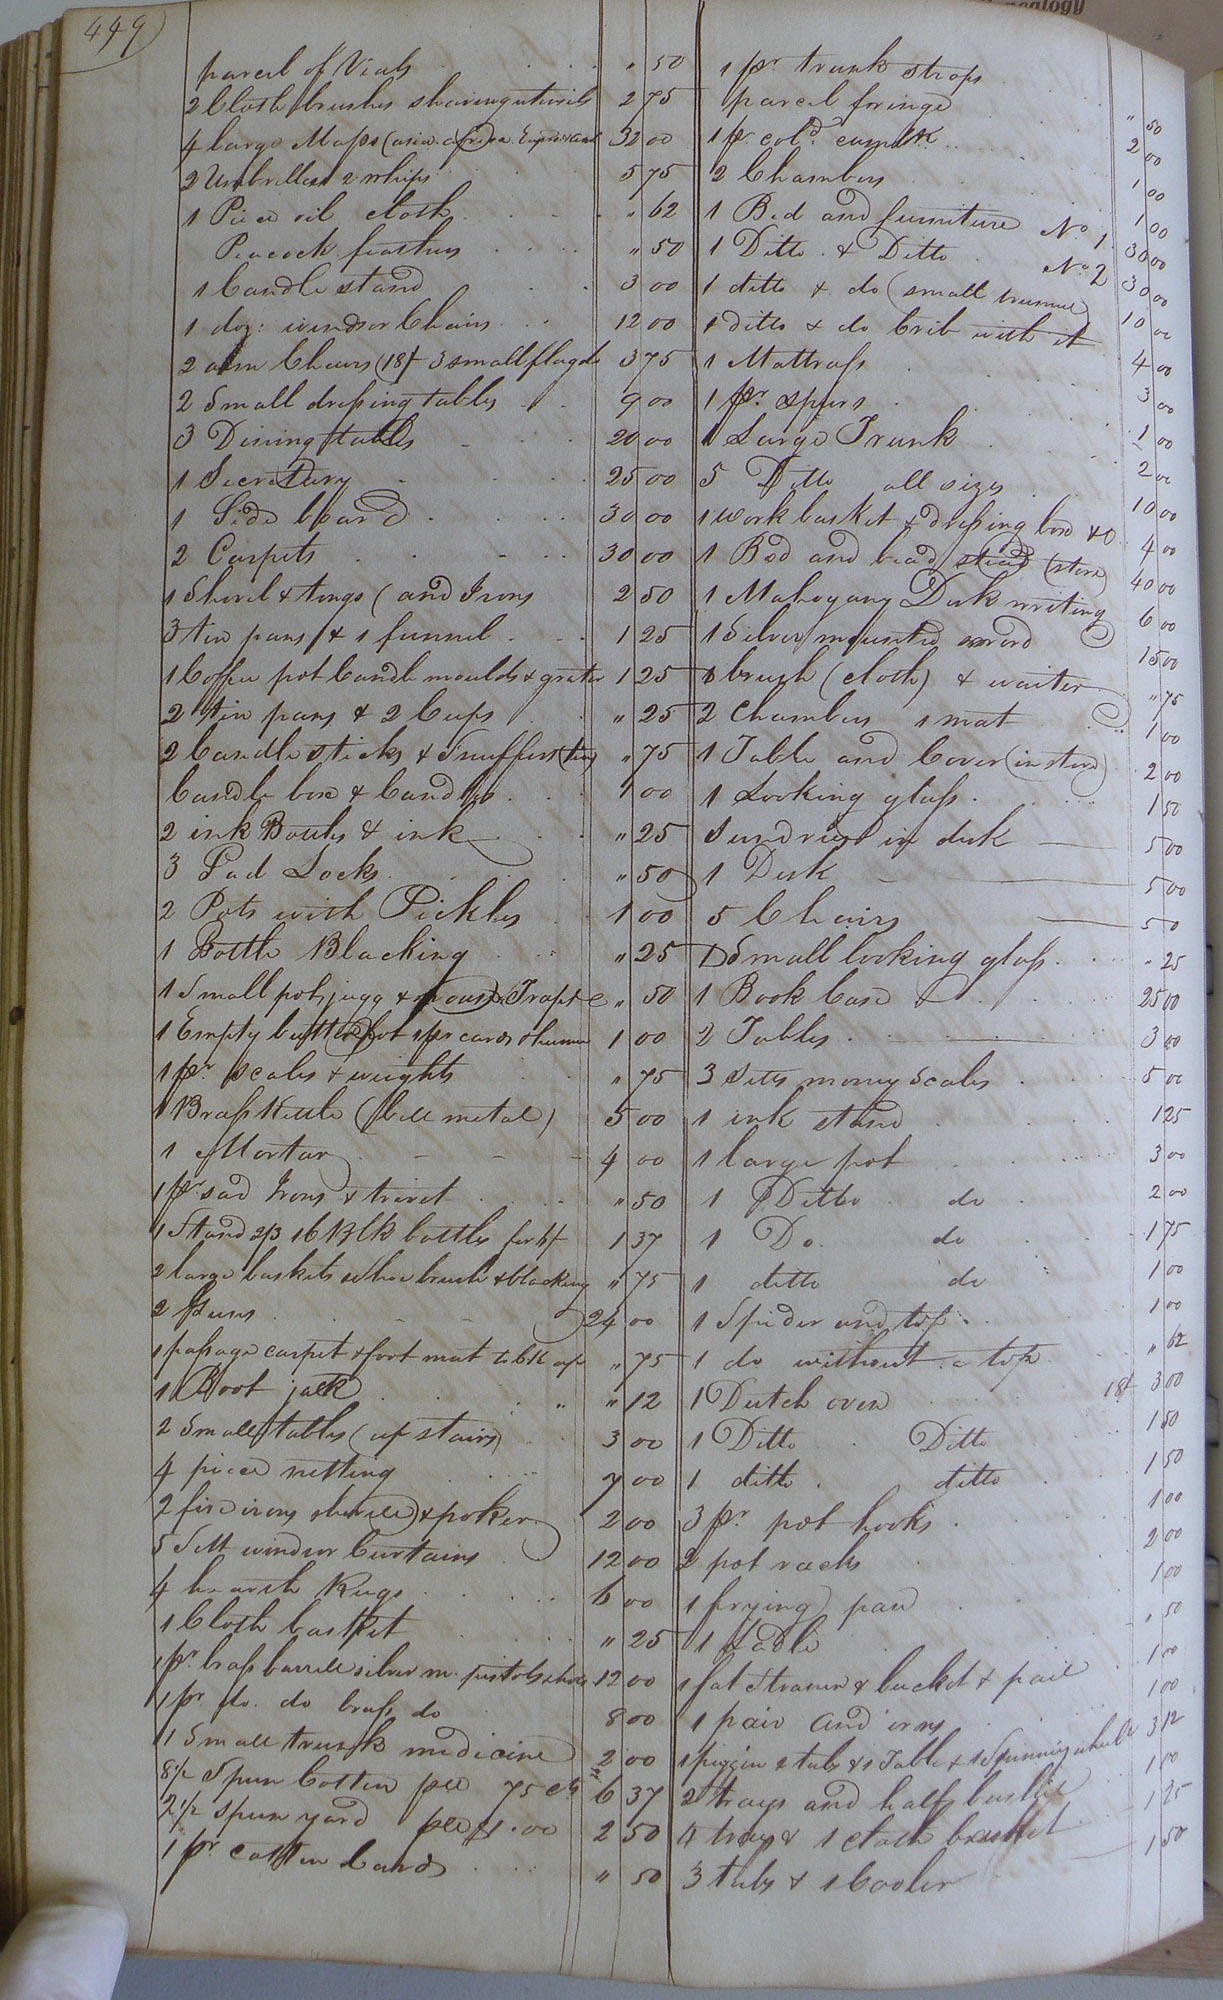 449
nealogy
parcel of Vials " 50
2 Cloth brushes shaving utensils 2 75
4 large Maps (asia africa Europe & 32 00
2 Umbrellas 2 whips 5 75
1 Piece oil cloth " 62
Peacock feathers " 50
1 Candle stand 3 00
1 doz: windsor Chairs 12 00
2 arm Chairs (18/ 3 small flag do 3 75
2 Small dressing tables 9 00
3 Dining tables 20 00
1 Secretary 25 00
1 Side board 30 00
2 Carpets 30 00
1 Shovel & tongs (and Irons 2 50
3 tin pans & 1 funnel 1 25
1 Coffee pot Candle moulds & grater 1 25
2 tin pans & 2 Cups " 25
2 Candle sticks & Snuffers (tin) " 75
Candle box & Candles 1 00
2 ink Bottles & ink " 25
3 Pad Locks " 50
2 Pots with Pickles 1 00
1 Bottle Blacking " 25
1 Small pot, jugg & mouse Trap &c " 50
1 Empty butter pot 1 pr cards 1 00
1 pr scales & weights " 75
1 Brass Kettle (bell metal) 5 00
1 Mortar 4 00
1 pr sad Irons & trivet " 50
1 Stand 2/3 16 Blk bottles for 6/ 1 37
2 large baskets shoe brush & blacking " 75
2 Guns 24 00
1 passage carpet & foot mat " 75
1 Boot jack " 12
2 Small tables (up stairs) 3 00
4 piece netting 7 00
2 fire irons shovell & poker 2 00
5 Sett window Curtains 12 00
4 hearth Rugs 6 00
1 Cloth basket " 25
1 pr. brass barrell silver m. pistols 12 00
1 pr do. do brass do 8 00
1 Small trunk medicine 2 00
8 1/2 Spun Cotten per 75 cts 6 37
2 1/2 spun yard per $1.00 2 50
1 pr. cotten Cards " 50
1 pr. trunk straps " 50
parcel fringe 2 00
1 pr. cold. 1 00
2 Chambers 1 00
1 Bed and furniture No 1 30 00
1 Ditto & Ditto No 2 30 00
1 ditto & do (small trunnel) 10 00
1 ditto & do Crib with it 4 00
1 Mattrass 3 00
1 pr. spurs 1 00
1 Large Trunk 2 00
5 Ditto all sizes 10 00
1 work basket & dressing box &c 4 00
1 Bed and bead stead (store) 40 00
1 Mahogany Desk writing 6 00
1 Silver mounted sword 15 00
1 brush (cloth) & waiter " 75
2 Chambers 1 mat 1 00
1 Table and Cover (in store) 2 00
1 Looking glass 1 50
Sundries in desk 5 00
1 Desk 5 00
5 Chairs 50
1 Small looking glass " 25
1 Book Case 25 00
2 Tables 3 00
3 Setts money Scales 5 00
1 ink stand 1 25
1 large pot 3 00
1 Ditto do 2 00
1 Do. do 1 75
1 ditto do 1 00
1 Spider and top 1 00
1 do without a top " 62
1 Dutch oven 18/ 3 00
1 Ditto Ditto 1 50
1 ditto ditto 1 50
3 pr. pot hooks 1 00
2 pot racks 2 00
1 frying pan 1 00
1 Ladle " 50
1 fat Strainer & bucket & pail 1 00
1 pair And irons 1 00
1 piggin 2 tubs & 1 Table & 1 Spinning wheel 3 12
2 trays and half bushel 1 00
4 trays & 1 cloth basket 1 25
3 tubs & 1 Cooler 1 50